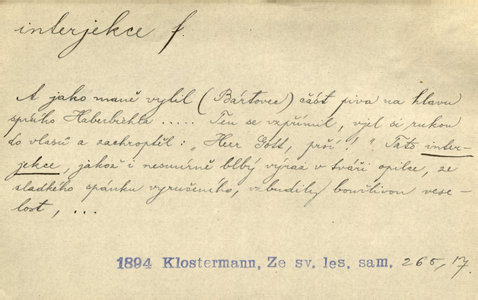 interjekce f.
A jako maně vylil (Bártovec) část piva na hlavu
spícího Haberbichla ..... Ten se vzpřímil, vjel si rukou
do vlasů a zachroptěl: „Herr Gott, prší!" Tato inter-
jekce, jakož i nesmírně blbý výraz v tváři opilce, ze
sladkého spánku vyrušeného, vzbudily bouřlivou vese-
lost, ...
1894 Klostermann, Ze sv. les. sam. 265, 17.